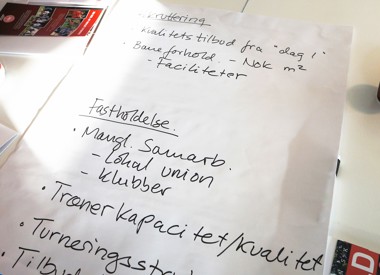 kruttering
kvalitetstilbod fra "dag 1"
• Baneforhold. - Nok m²
- Faciliteter
Fastholdelse.
• Mangl. Samarb.
- Lokal union
- Klubber
• Træner kapacitet/kvalitet
• Turneringsstru
• Tilbud